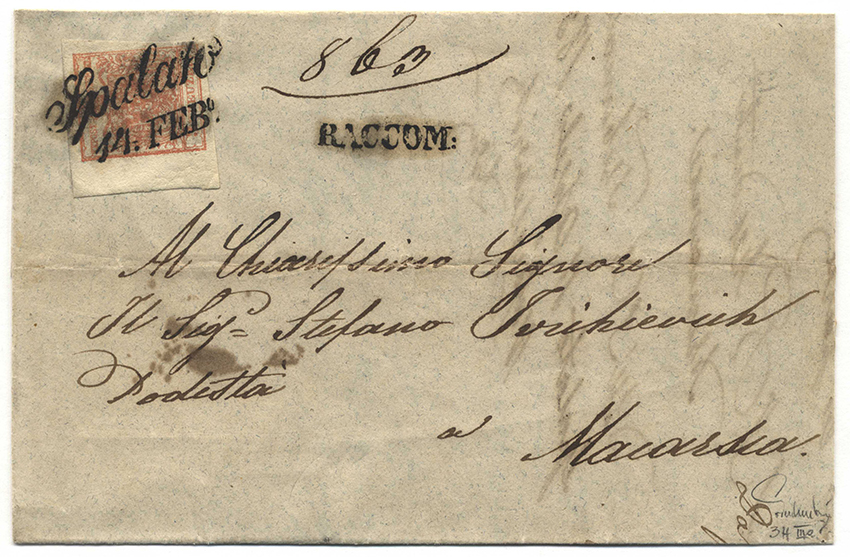 Spalato
14. FEB.º
863
RACCOM:
Al Chiarissimo Signore
Il Sigr Stefano Ivichievich
Podestà
a Macarsca.
34 IIIa